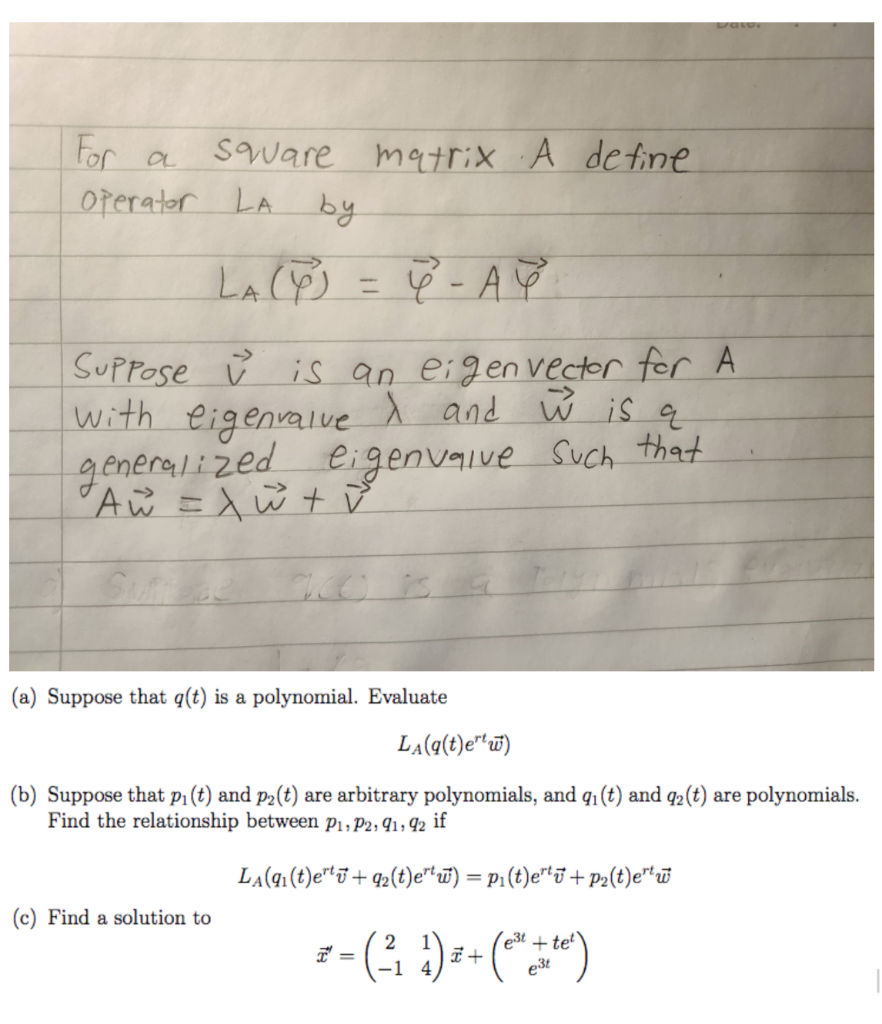 For a square matrix A define
operator LA by
L_A(φ⃗) = φ⃗ - Aφ⃗
Suppose v⃗ is an eigenvector for A
with eigenvalue λ and w⃗ is a
generalized eigenvalue such that
Aw⃗ = λw⃗ + v⃗
(a) Suppose that q(t) is a polynomial. Evaluate
L_A(q(t)e^{rt}w⃗)
(b) Suppose that p₁(t) and p₂(t) are arbitrary polynomials, and q₁(t) and q₂(t) are polynomials.
Find the relationship between p₁, p₂, q₁, q₂ if
L_A(q₁(t)e^{rt}v⃗ + q₂(t)e^{rt}w⃗) = p₁(t)e^{rt}v⃗ + p₂(t)e^{rt}w⃗
(c) Find a solution to
x⃗′ = (2 1; -1 4) x⃗ + (e^{3t} + te^t; e^{3t})